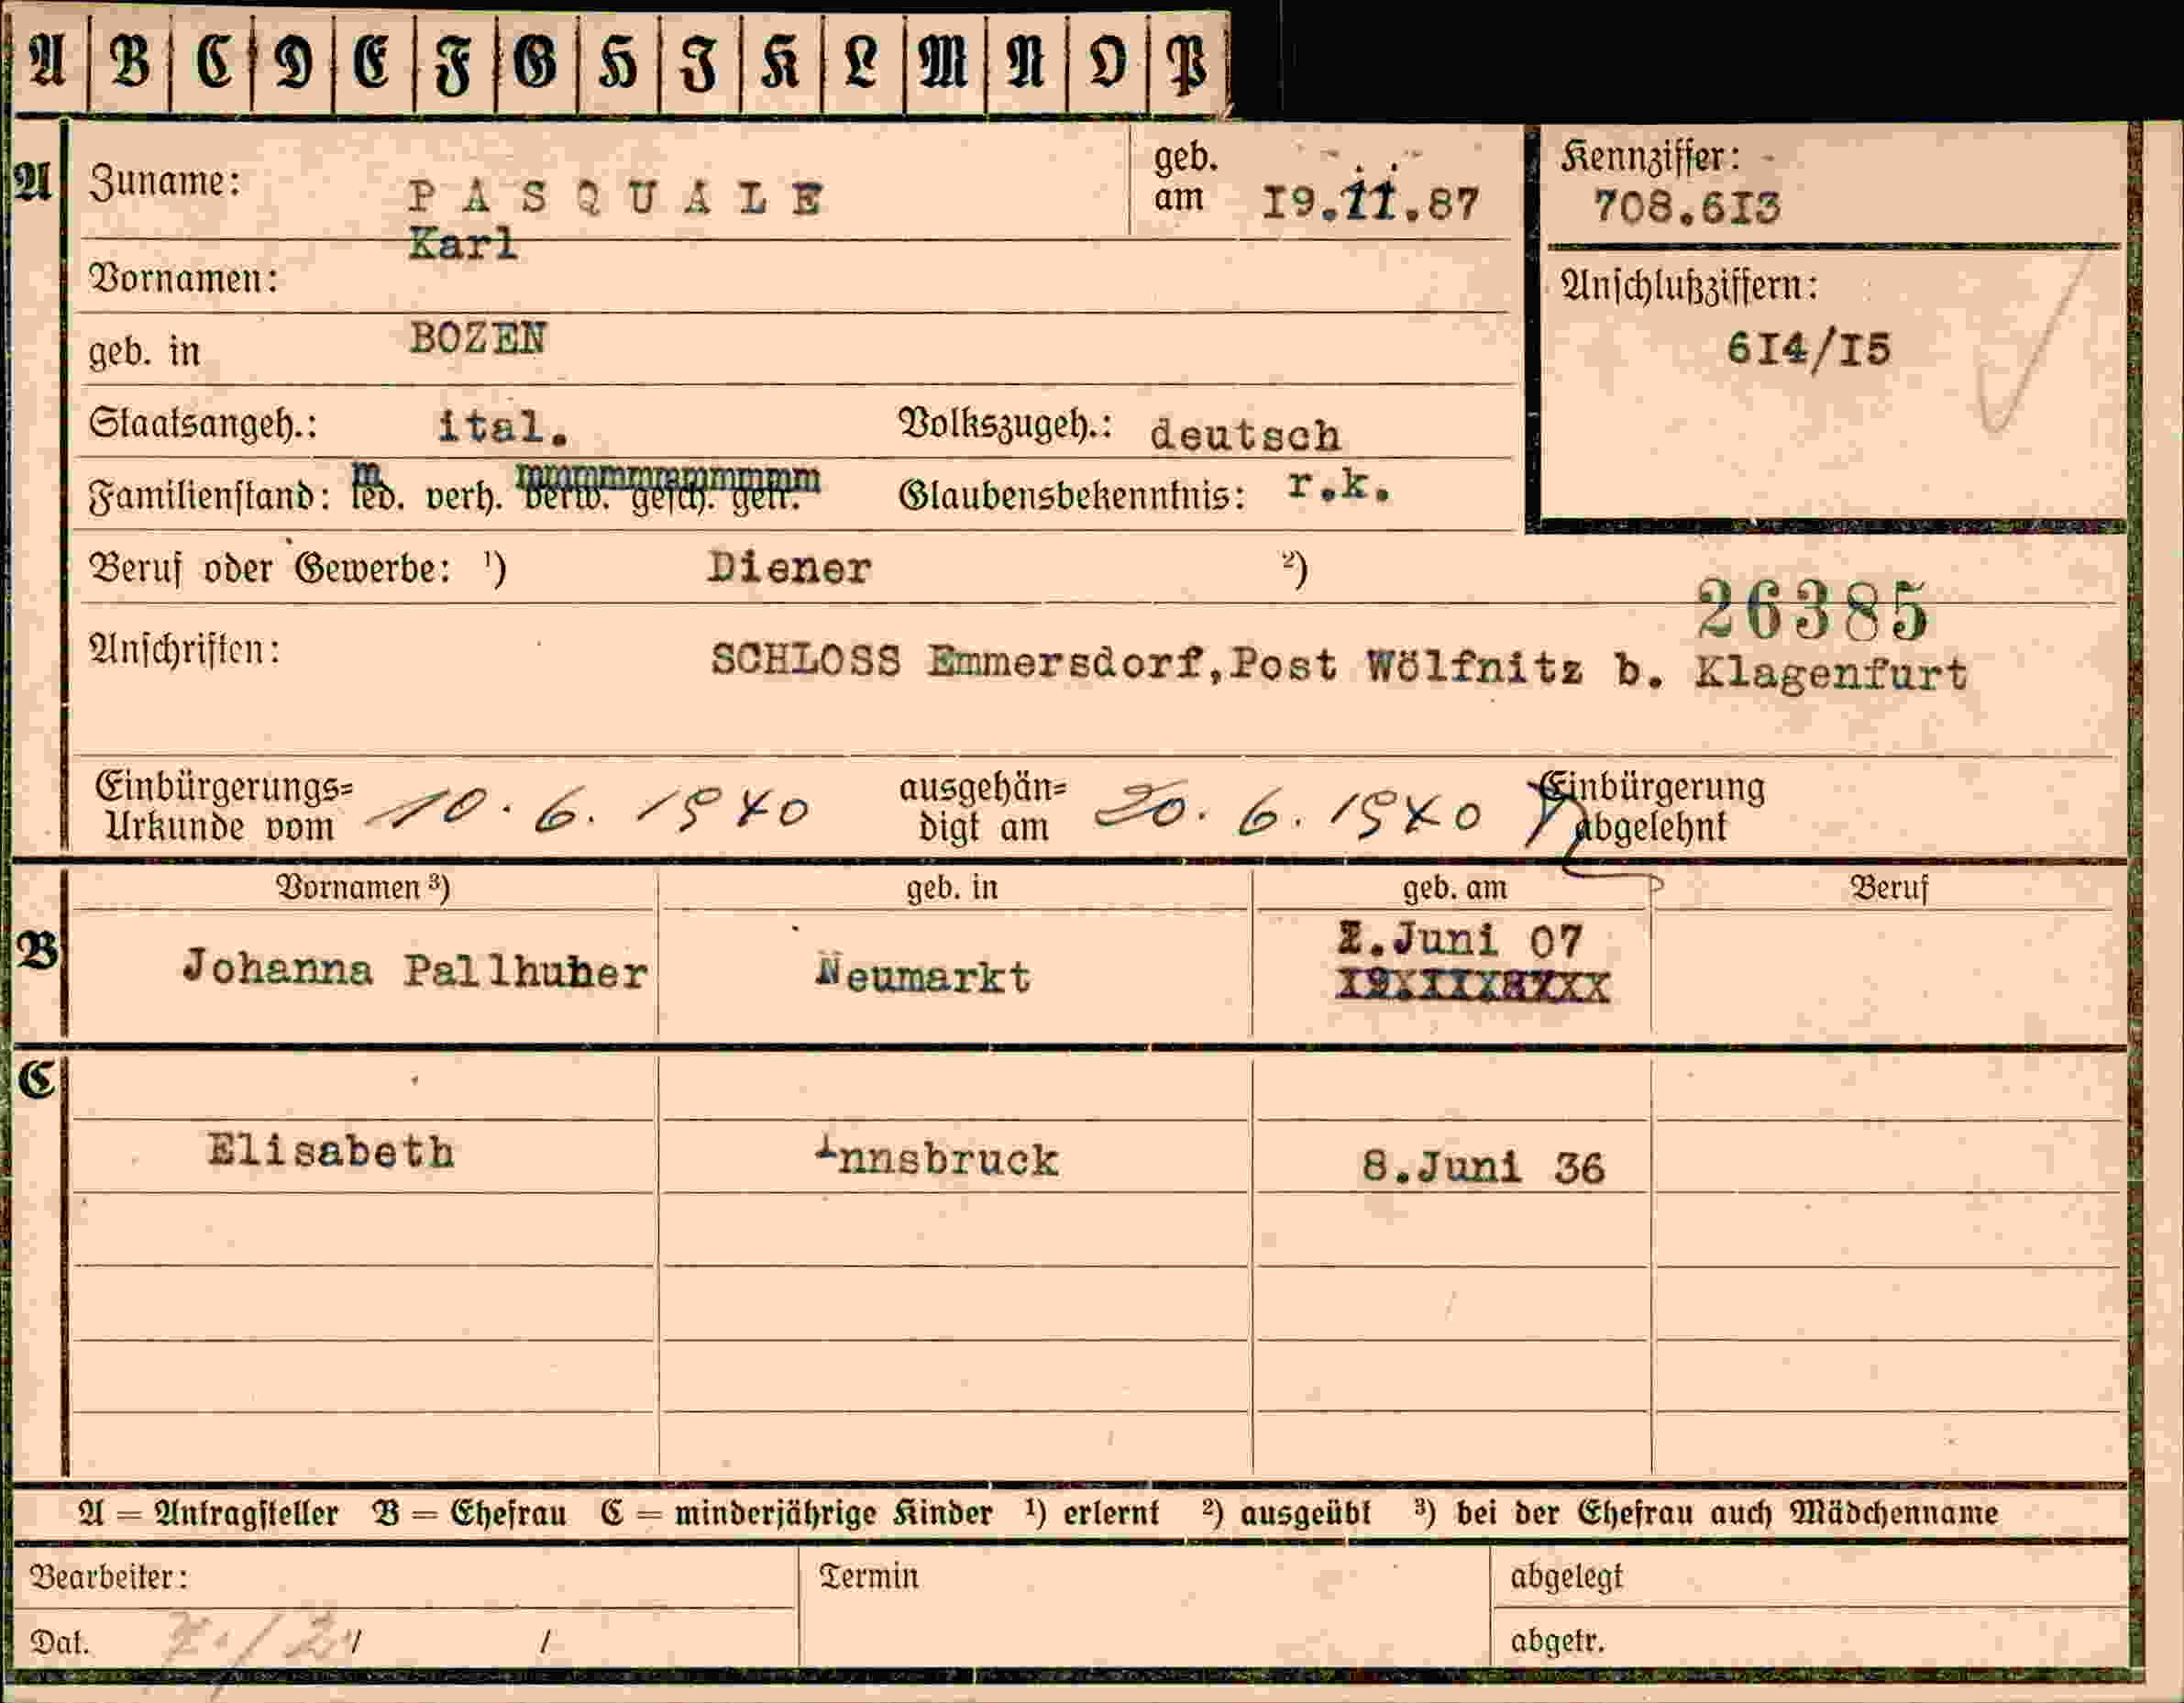 A B C D E F G H I K L M N O P
A Zuname: PASQUALE geb. am 19.11.87 Kennziffer: 708.613
Vornamen: Karl
Anschlußziffern: 614/15
geb. in BOZEN
Staatsangeh.: ital. Volkszugeh.: deutsch
Familienstand: led. verh. verw. gesch. getr. Glaubensbekenntnis: r.k.
Beruf oder Gewerbe: 1) Diener 2)
26385
Anschriften: SCHLOSS Emmersdorf,Post Wölfnitz b. Klagenfurt
Einbürgerungs= Urkunde vom 10.6.1940 ausgehän= digt am 20.6.1940 Einbürgerung abgelehnt
Vornamen 3) geb. in geb. am Beruf
B Johanna Pallhuber Neumarkt 2.Juni 07
C
Elisabeth Innsbruck 8.Juni 36
A = Antragsteller B = Ehefrau C = minderjährige Kinder 1) erlernt 2) ausgeübt 3) bei der Ehefrau auch Mädchenname
Bearbeiter: Termin abgelegt
Dat. / / abgetr.